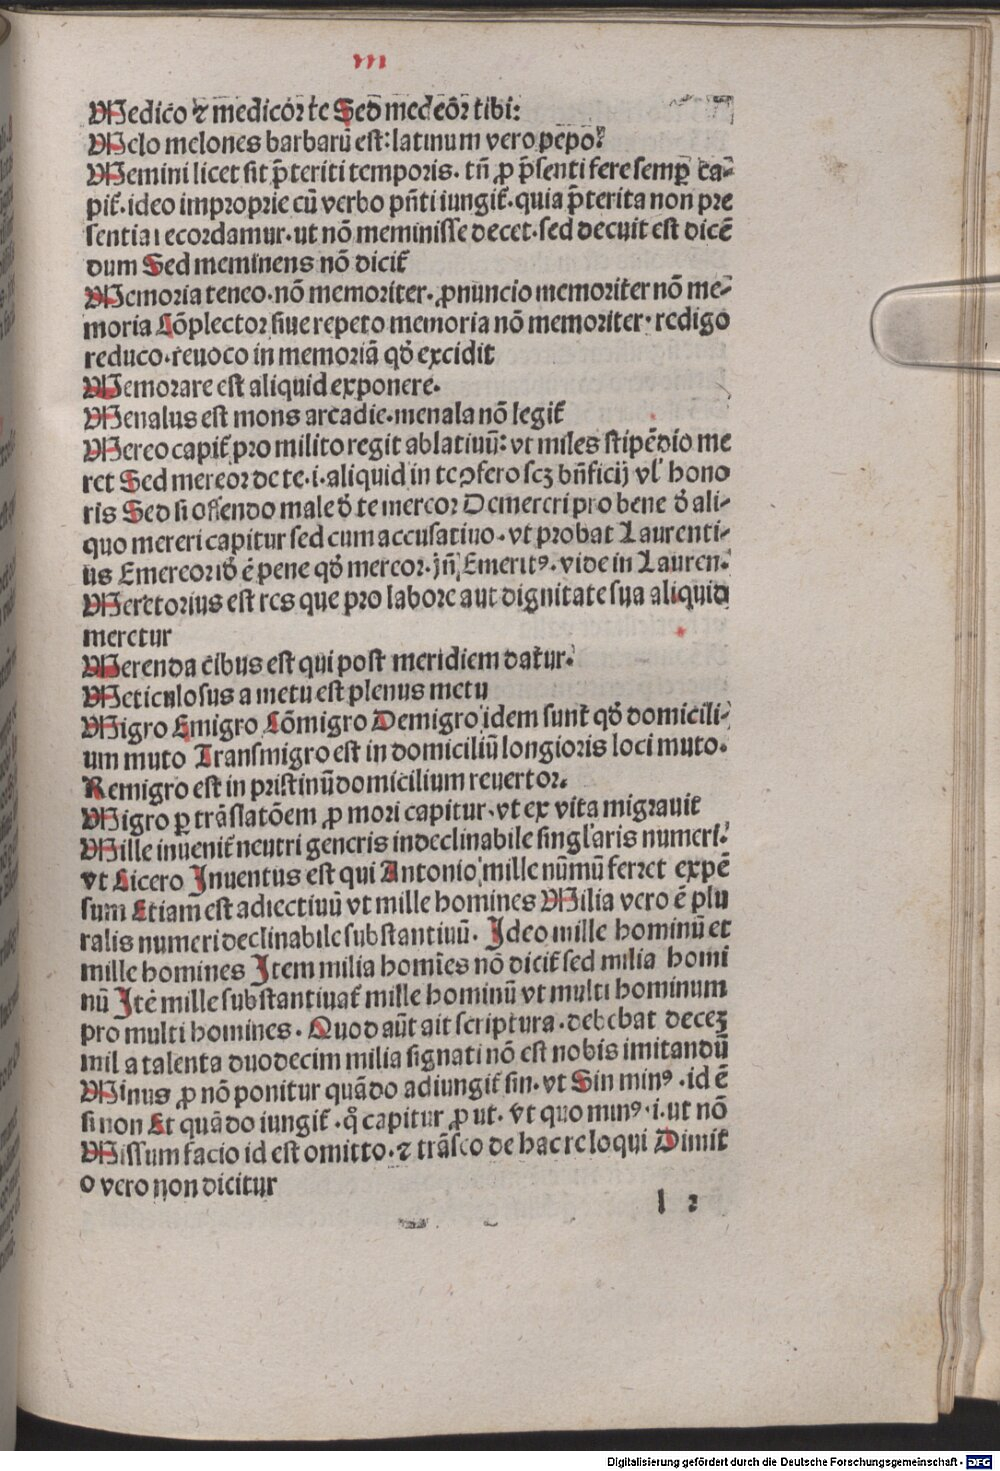 m
Medico ⁊ medicor te Sed medeor tibi:
Melo melones barbarū est: latinum vero pepo.
Memini licet sit p̄teriti temporis. tñ ꝓ p̄senti fere semꝑ ca-
pit̄. ideo improprie cū verbo pn̄ti iungit̄. quia p̄terita non pre
sentia recordamur. ut nō meminisse decet. sed decuit est dicē
dum Sed meminens nō dicit̄
Memoria teneo. nō memoriter. ꝓnuncio memoriter nō me-
moria Cōplector siue repeto memoria nō memoriter. redigo
reduco. reuoco in memoriā qđ excidit
Memorare est aliquid exponere.
Menalus est mons arcadie. menala nō legit̄
Mereo capit̄ pro milito regit ablatiuū: vt miles stipēdio me
ret Sed mereor de te. i. aliquid in te ꝯfero scꝫ bn̄ficij vl' hono
ris Sed si offendo male đ te mereor Demereri pro bene đ ali-
quo mereri capitur sed cum accusatiuo. vt probat Laurenti-
us Emereor iđ ē pene qđ mereor. jn̄ Emeritꝰ. vide in Lauren.
Meretorius est res que pro labore aut dignitate sua aliquid
meretur
Merenda cibus est qui post meridiem datur.
Meticulosus a metu est plenus metu
Migro Emigro Cōmigro Demigro idem sunt qđ domicili-
um muto Transmigro est in domiciliū longioris loci muto.
Remigro est in pristinū domicilium reuertor.
Migro ꝑ trāslatōem ꝓ mori capitur. vt ex vita migrauit
Mille inuenit̄ neutri generis indeclinabile singl'aris numeri.
vt Cicero Inuentus est qui Antonio mille nūmū ferret expē
sum Etiam est adiectiuū vt mille homines Milia vero ē plu
ralis numeri declinabile substantiuū. Ideo mille hominū et
mille homines Item milia homīes nō dicit̄ sed milia homi
nū Itē mille substantiuat̄ mille hominū vt multi hominum
pro multi homines. Quod aūt ait scriptura. debebat deceꝫ
mil a talenta duodecim milia signati nō est nobis imitandū
Minus ꝓ nō ponitur quādo adiungit̄ sin. vt Sin minꝰ. id ē
si non Et quādo iungit̄. q̊ capitur ꝓ ut. vt quo minꝰ. i. ut nō
Missum facio id est omitto. ⁊ trāseo de hac re loqui Dimit
o vero non dicitur
l 2
Digitalisierung gefördert durch die Deutsche Forschungsgemeinschaft - DFG